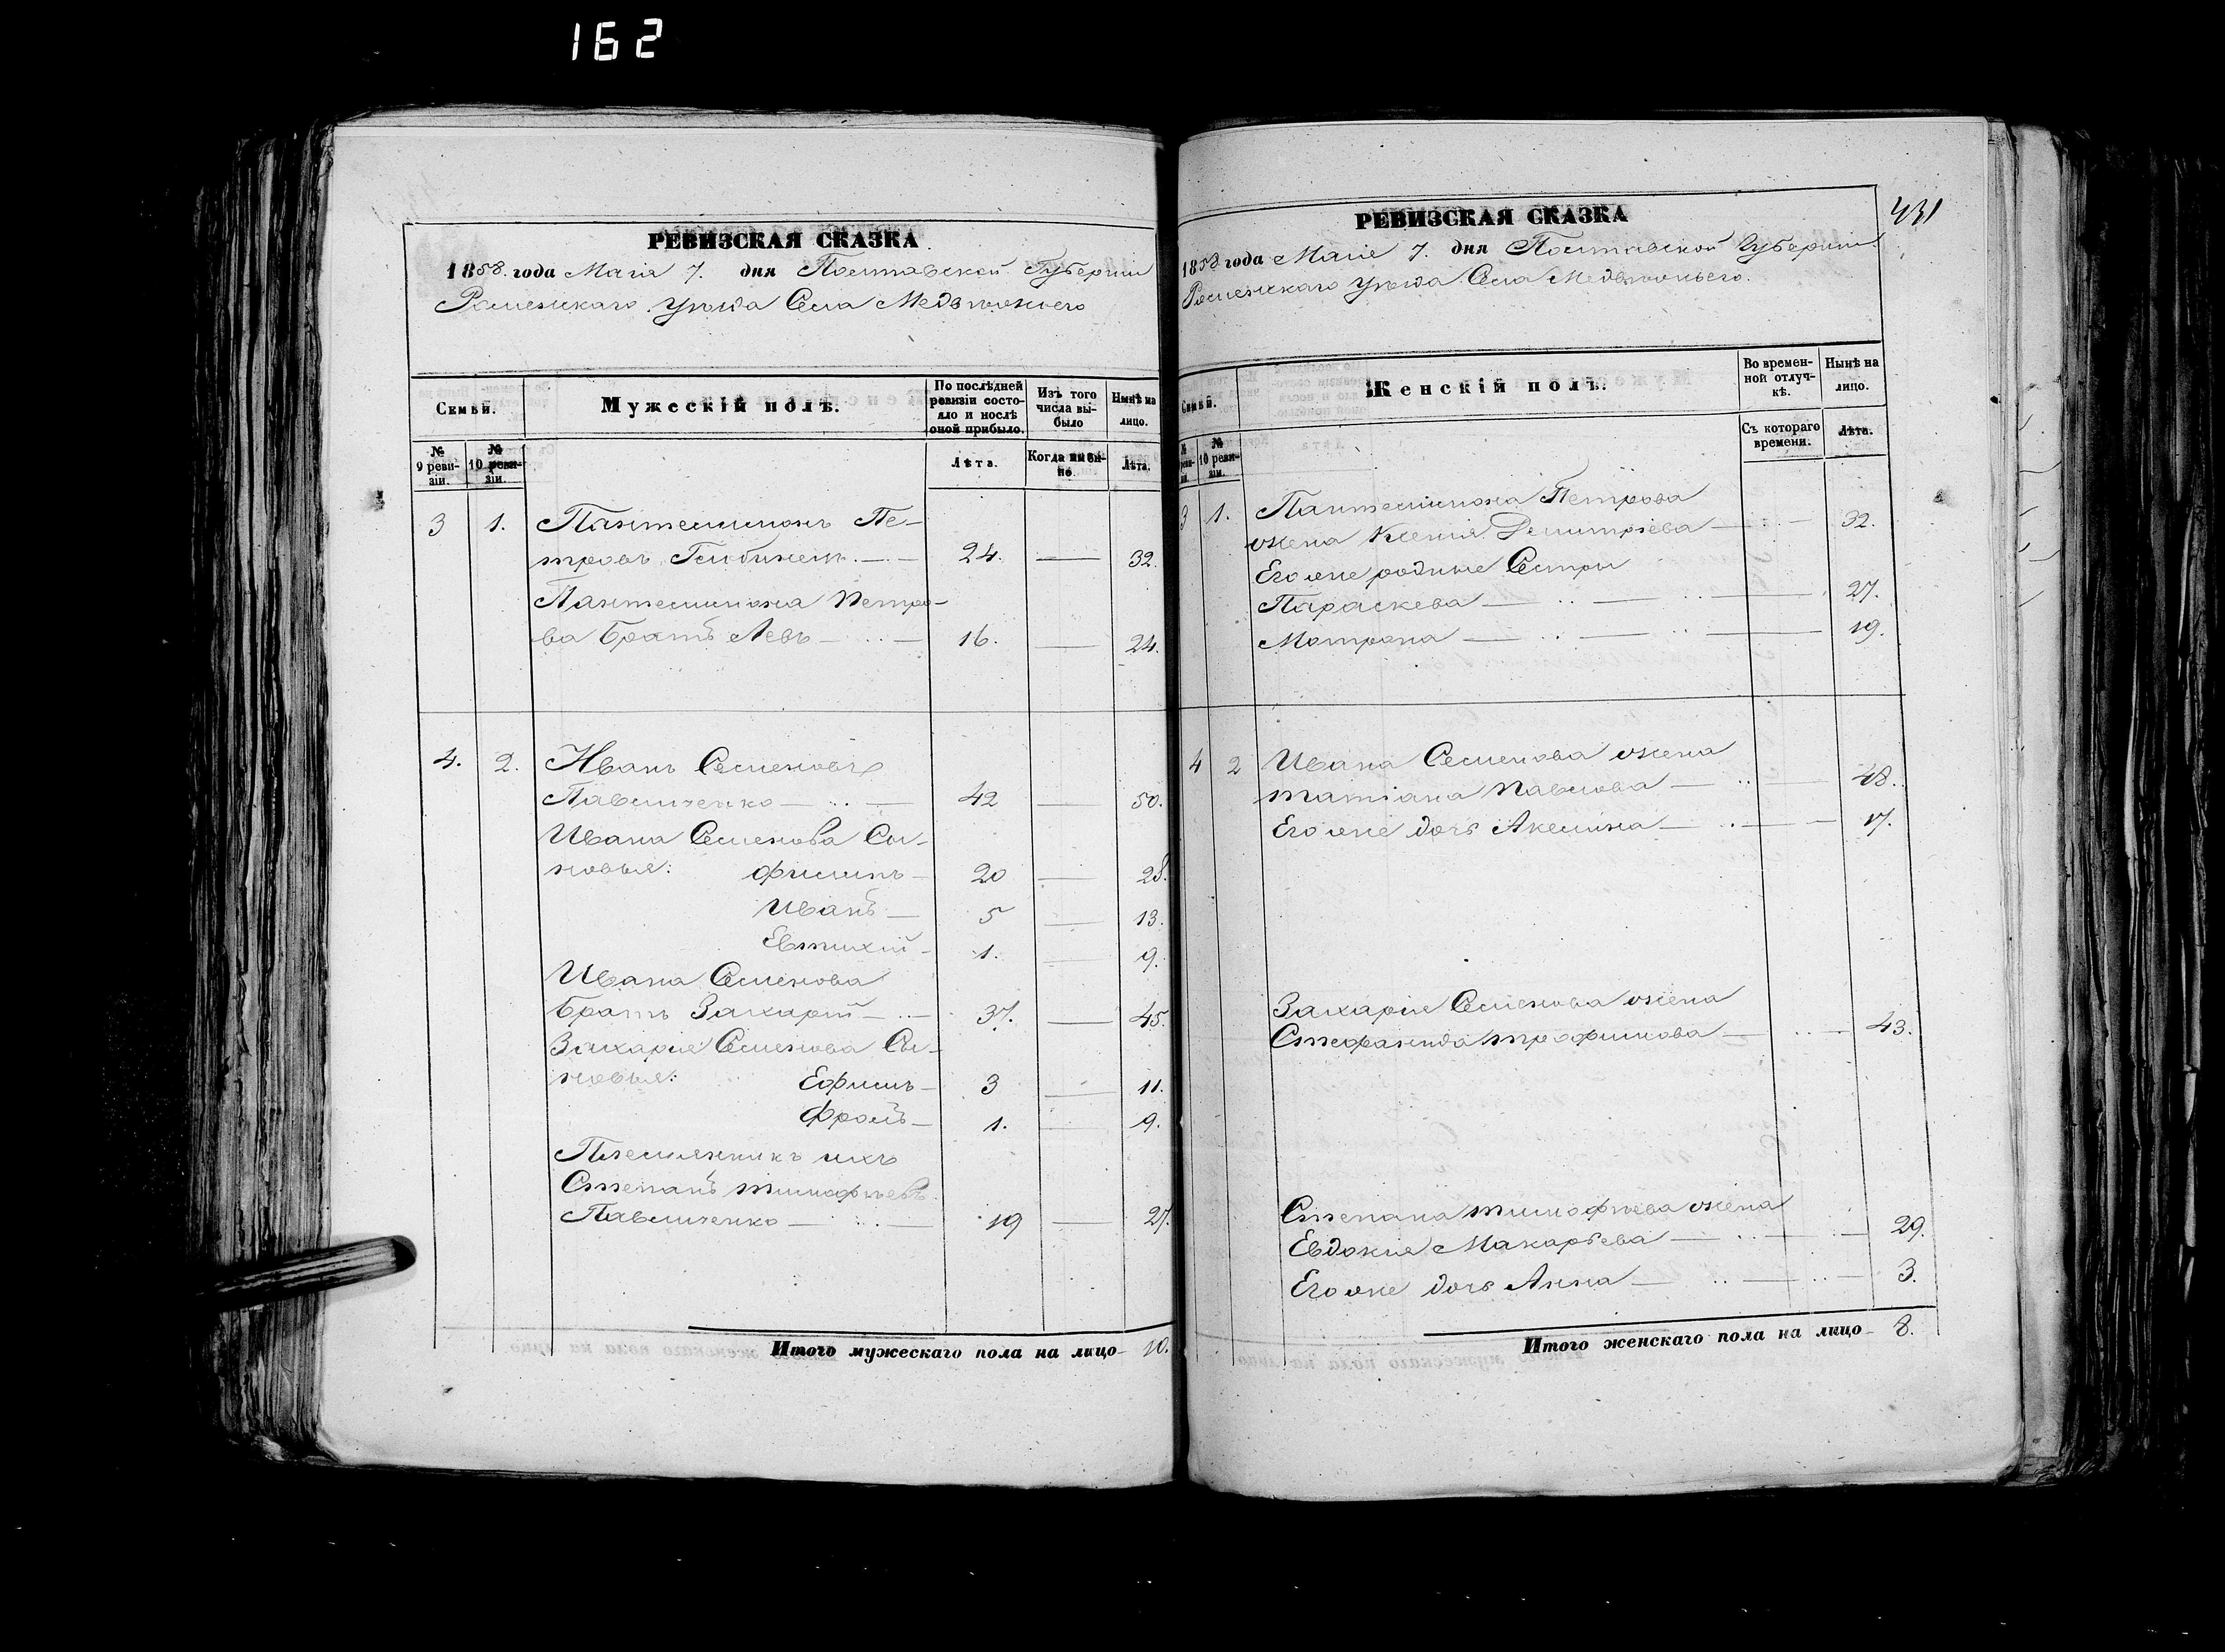 162
РЕВИЗСКАЯ СКАЗКА
1858. года Маія 7. дня Полтавской Губерніи
Роменскаго уѣзда Села Медвѣжьего
Семьи.
Мужескій полъ.
По послѣдней ревизіи состояло и послѣ оной прибыло.
Изъ того числа выбыло
Нынѣ на лицо.
№ 9 ревизіи.
№ 10 ревизіи.
Лѣта.
Когда именно.
Лѣта.
3 1. Пантелимонъ Пе-
тровъ — 24. — 32.
Пантелимона Петро-
ва Братъ Левъ — 16. — 24.
4. 2. Иванъ Семеновъ
Павличенко — 42 — 50.
Ивана Семенова Сы-
новья: Филипъ — 20 — 28.
Иванъ — 5 — 13.
Евтихій — 1. — 9.
Ивана Семенова
Братъ Захарій — 37. — 45.
Захарія Семенова Сы-
новья: Ефимъ — 3 — 11.
Фролъ — 1. — 9.
Племянникъ ихъ
Степанъ Тимофѣевъ
Павличенко — 19 — 27.
Итого мужескаго пола на лицо 10.
431
РЕВИЗСКАЯ СКАЗКА
1858 года Маія 7. дня Полтавской Губерніи
Роменскаго уѣзда Села Медвѣжьего.
Семьи.
Женскій полъ.
Во временной отлучкѣ.
Нынѣ на лицо.
№ 9 ревизіи.
№ 10 ревизіи.
Съ котораго времени.
Лѣта.
3 1. Пантелимона Петрова
жена Ксенія Димитріева — 32.
Его же родные Сестры
Параскева — 27.
Мотрона — 19.
4 2 Ивана Семенова жена
Татіана Павлова — 48.
Его же дочь Акелина — 17.
Захарія Семенова жена
Стефанида Трофимова — 43.
Степана Тимофѣева жена
Евдокія Макарьева — 29.
Его же дочь Анна — 3.
Итого женскаго пола на лицо 8.